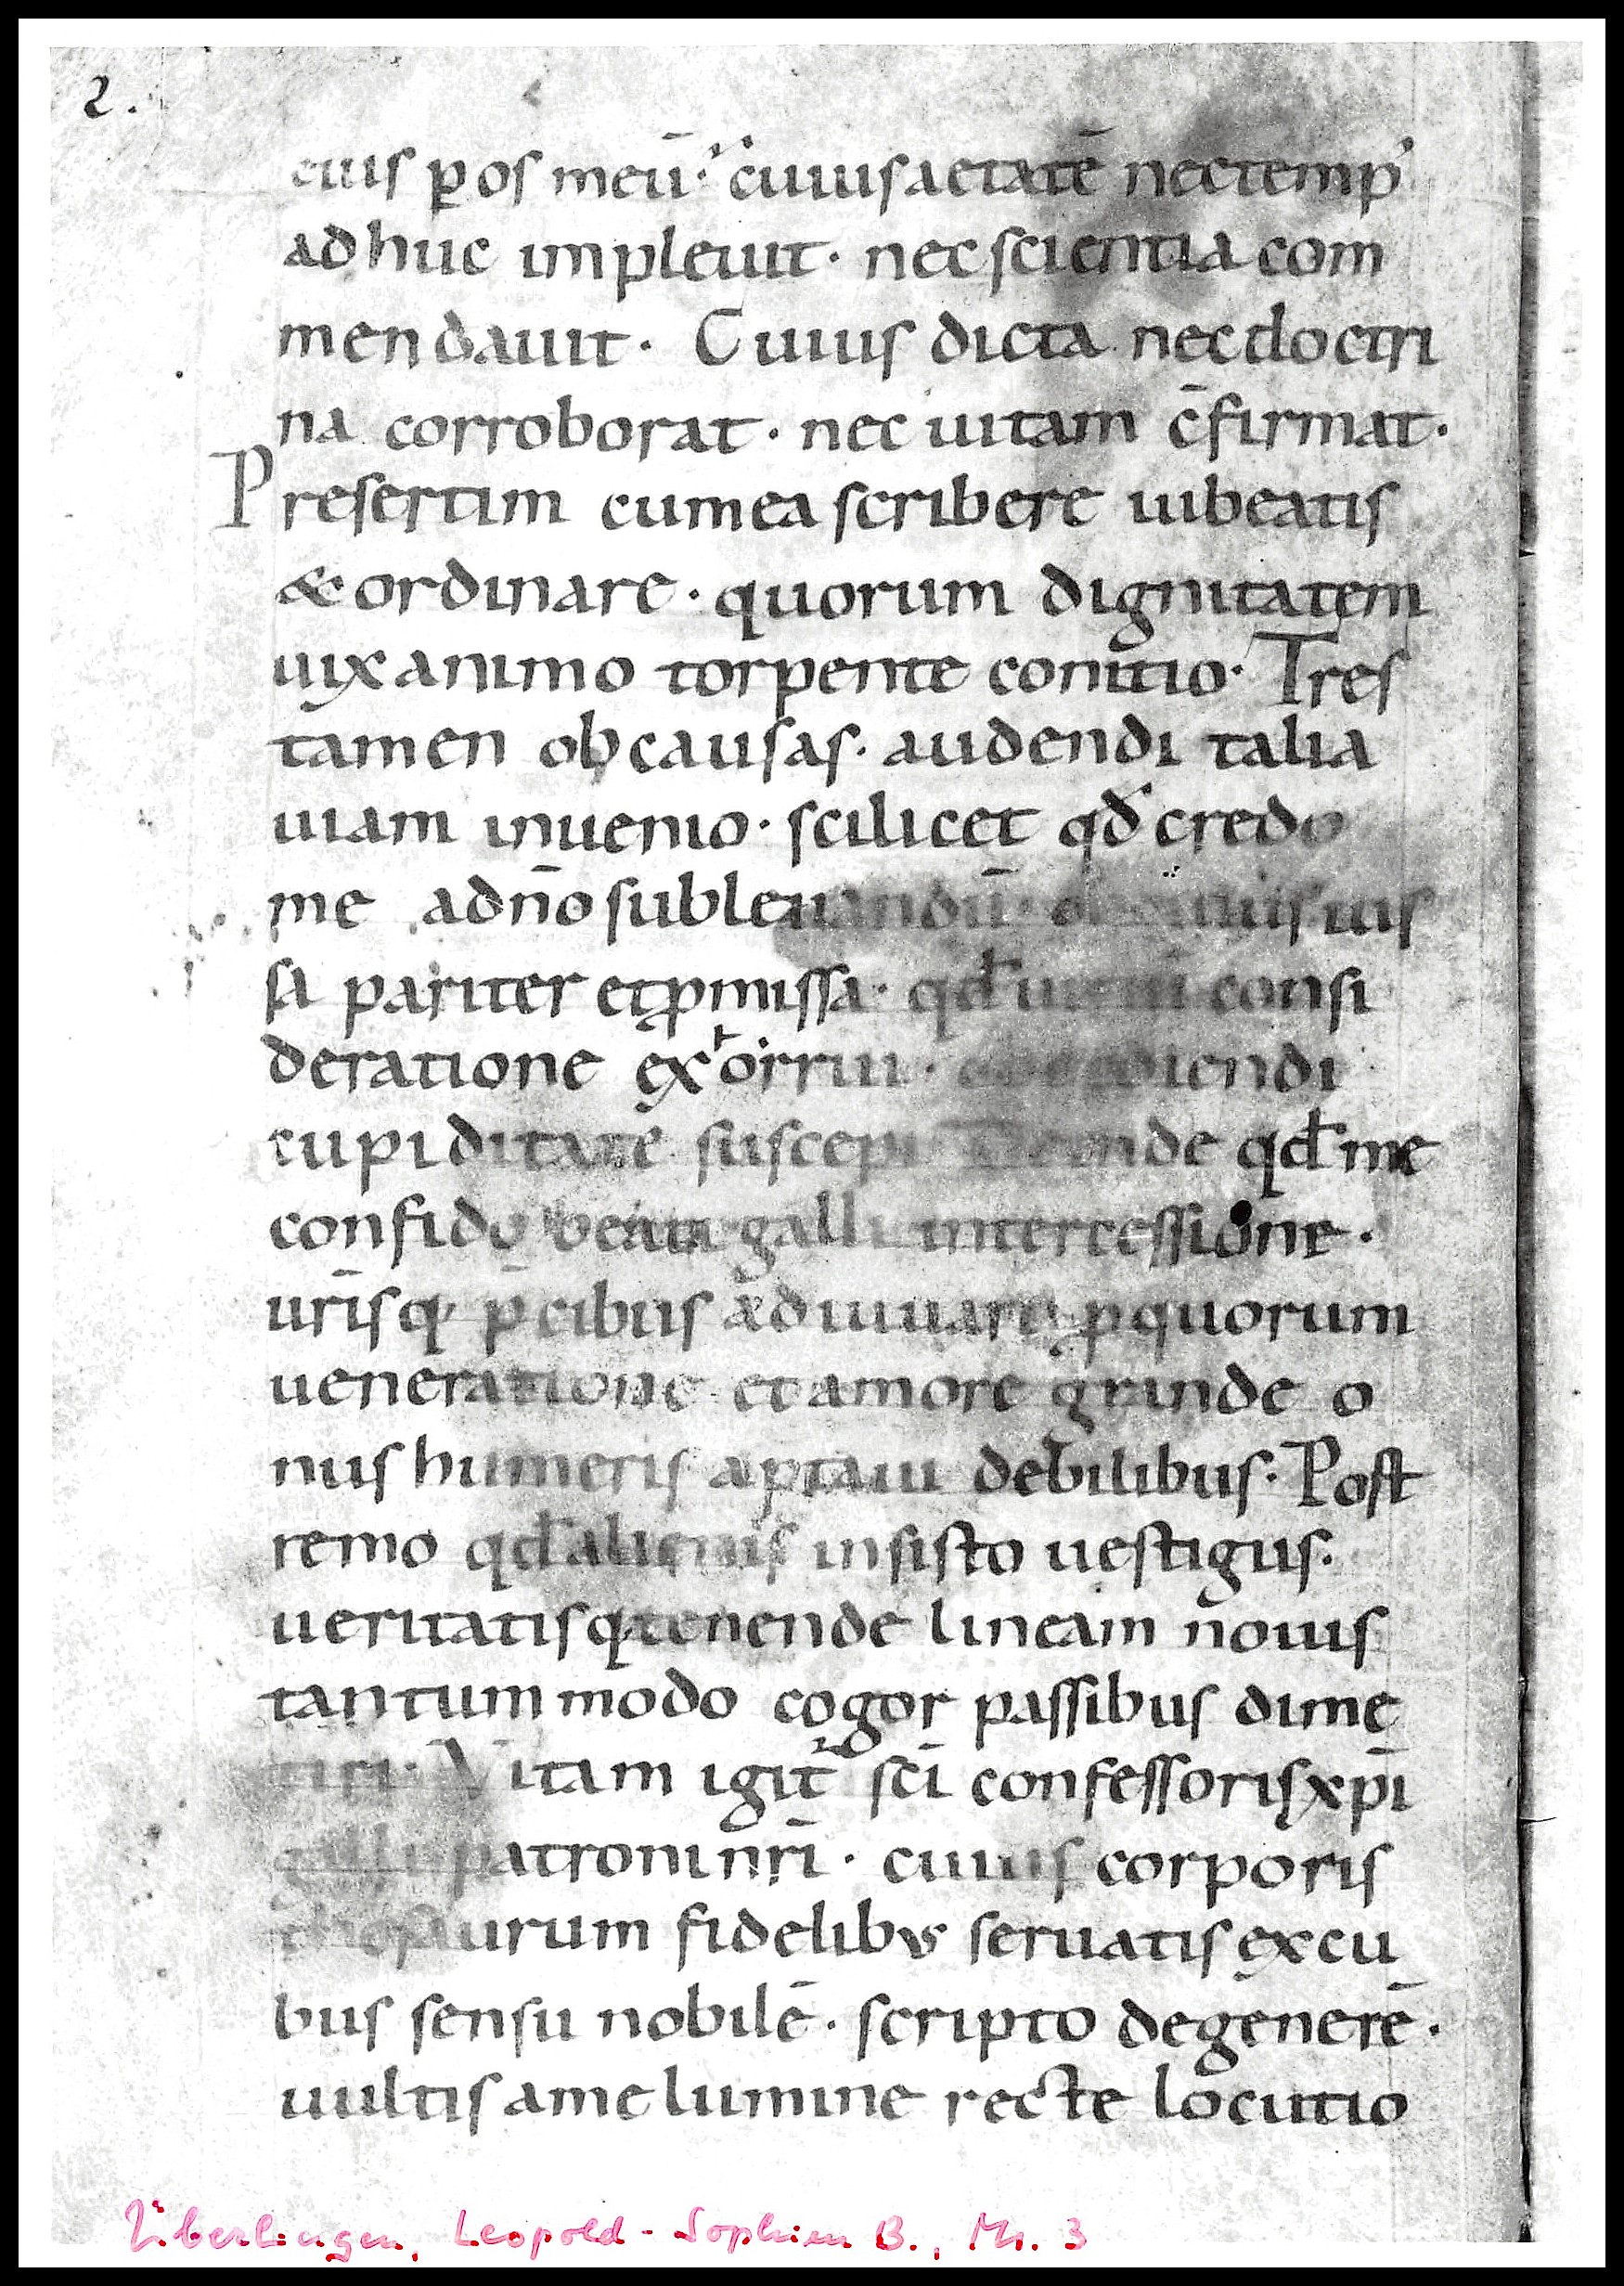 2.
cuis p̲ os meū· cuiuſ aetatē nec temp'
adhuc impleuit· nec ſcientia com
mendauit· Cuiuſ dicta nec doctri
na corroborat· nec uitam c̄firmat·
Preſertim cum ea ſcribere iubeatiſ
& ordinare· quorum dignitatem
uix animo torpente concipio· Treſ
tamen ob cauſaſ· audendi talia
uiam inuenio· ſcilicet qd̄ credo
me adn̄o ſubleuandū· uiſ iuſ
ſa pariter et ꝓmiſſa· qd̄ conſi
deratione exhorrui· obediendi
cupiditate ſuſcepi Deinde qd̄ me
confido beati galli interceſſione·
ur̄iſq; p̄cibuſ adiuuari, p̲ quorum
ueneratione et amore grande o
nuſ humeriſ aptaui debilibuſ· Poſt
remo qd̄ alieniſ inſiſto ueſtigiiſ·
ueritatiſq; tenende lineam nouiſ
tantummodo cogor paſſibuſ dime
tiri· Vitam igit̄ ſc̄i confeſſoriſ xp̄i
galli patroni nr̄i· cuiuſ corporiſ
theſaurum fidelibuſ ſeruatiſ excu
buſ ſenſu nobilē· ſcripto degenerē·
uultiſ ame lumine recte locutio
Überlingen, Leopold-Sophien B., Nr. 3